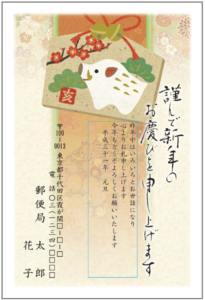 謹んで新年の
お慶びを申し上げます
昨年中はいろいろとお世話になり
心よりお礼申し上げます
今年もどうぞよろしくお願いいたします
平成三十一年 元旦
亥
〒100-
0013
東京都千代田区霞が関□-□-□
電話〇三(一二三四)□□□□
郵便局 太郎
花子